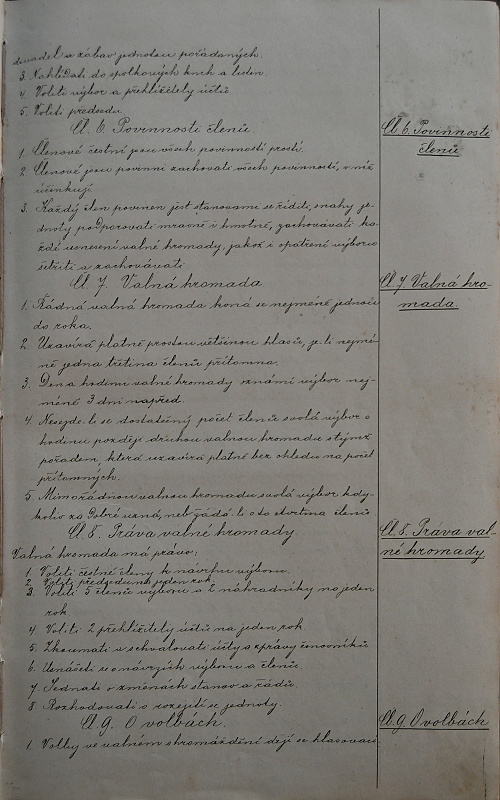 divadel a zábav jednotou pořádaných.
3. Nahlížeti do spolkových knih a listin.
4. Voliti výbor a přehlížitely účtů
5. Voliti předsedu.
Čl. 6. Povinnosti členů
Čl. 6. Povinnosti
členů
1. Členové čestní jsou všech povinností prosti.
2. Členové jsou povinni zachovati všech povinností, v níž
účinkují.
3. Každý člen povinen jest stanovami se říditi, snahy je-
dnoty podporovati mravně i hmotně, zachovávati ka-
ždé usnesení valné hromady, jakož i opatření výborem
šetřiti a zachovávati
Čl. 7. Valná hromada
Čl. 7. Valná hro-
mada.
1. Řádná valná hromada koná se nejméně jednou
do roka.
2. Uzavírá platně prostou většinou hlasů, je-li nejmé-
ně jedna třetina členů přítomna.
3. Den a hodinu valné hromady oznámí výbor nej-
méně 3 dni napřed.
4. Nesejde-li se dostatečný počet členů svolá výbor o
hodinu později druhou valnou hromadu s týmž
pořadem, která uzavírá platně bez ohledu na počet
přítomných.
5. Mimořádnou valnou hromadu svolá výbor kdy-
koliv za dobré uzná, neb žádá-li o to čtvrtina členů
Čl. 8. Práva valné hromady
Čl. 8. Práva val-
né hromady
Valná hromada má právo:
1. Voliti čestné členy k návrhu výboru.
2. Voliti předsedu na jeden rok.
3. Voliti 5 členů výboru a 2 náhradníky na jeden
rok
4. Voliti 2 přehlížitely účtů na jeden rok
5. Zkoumati a schvalovati účty a zprávy činovníků
6. Usnášeti se o návrzích výboru a členů.
7. Jednati o změnách stanov a řádů.
8. Rozhodovati o rozejití se jednoty.
Čl. 9. O volbách.
Čl. 9. O volbách
1. Volby ve valném shromáždění dějí se hlasovací